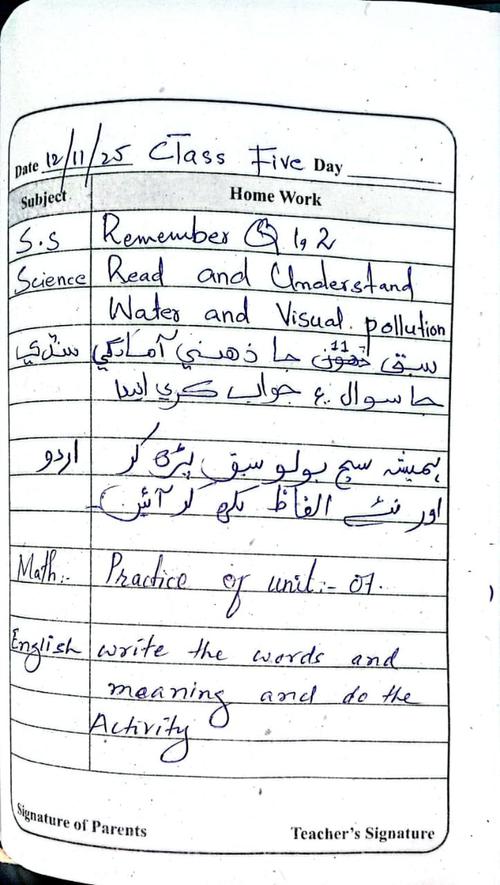 Date 12/11/25 Class Five Day
Subject Home Work
S.S Remember Q 1,2
Science Read and Understand
Water and Visual. pollution
سنڌي سبق 11 جا ذهني آمادگي
جا سوال ۽ جواب ڪري ايندا
اردو ہمیشہ سچ بولو سبق پڑھ کر
اور نئے الفاظ لکھ کر آئیں۔
Math:- Practice of unit:- 07.
English write the words and
meaning and do the
Activity
Signature of Parents Teacher's Signature